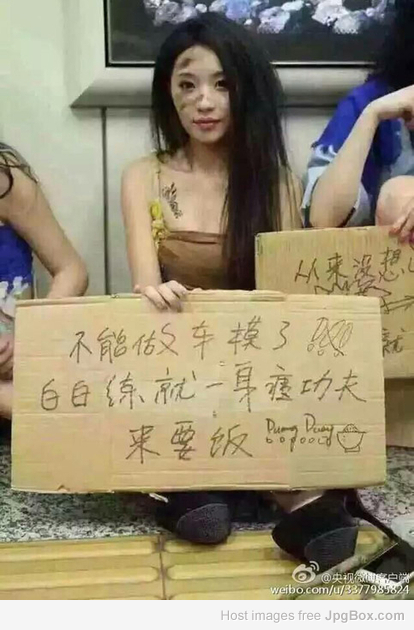 不能做车模了!!!
白白练就一身功夫
来要饭 Duang Duang
从来没想
就
@央视微博客户端
weibo.com/u/3377985824
Host images free JpgBox.com